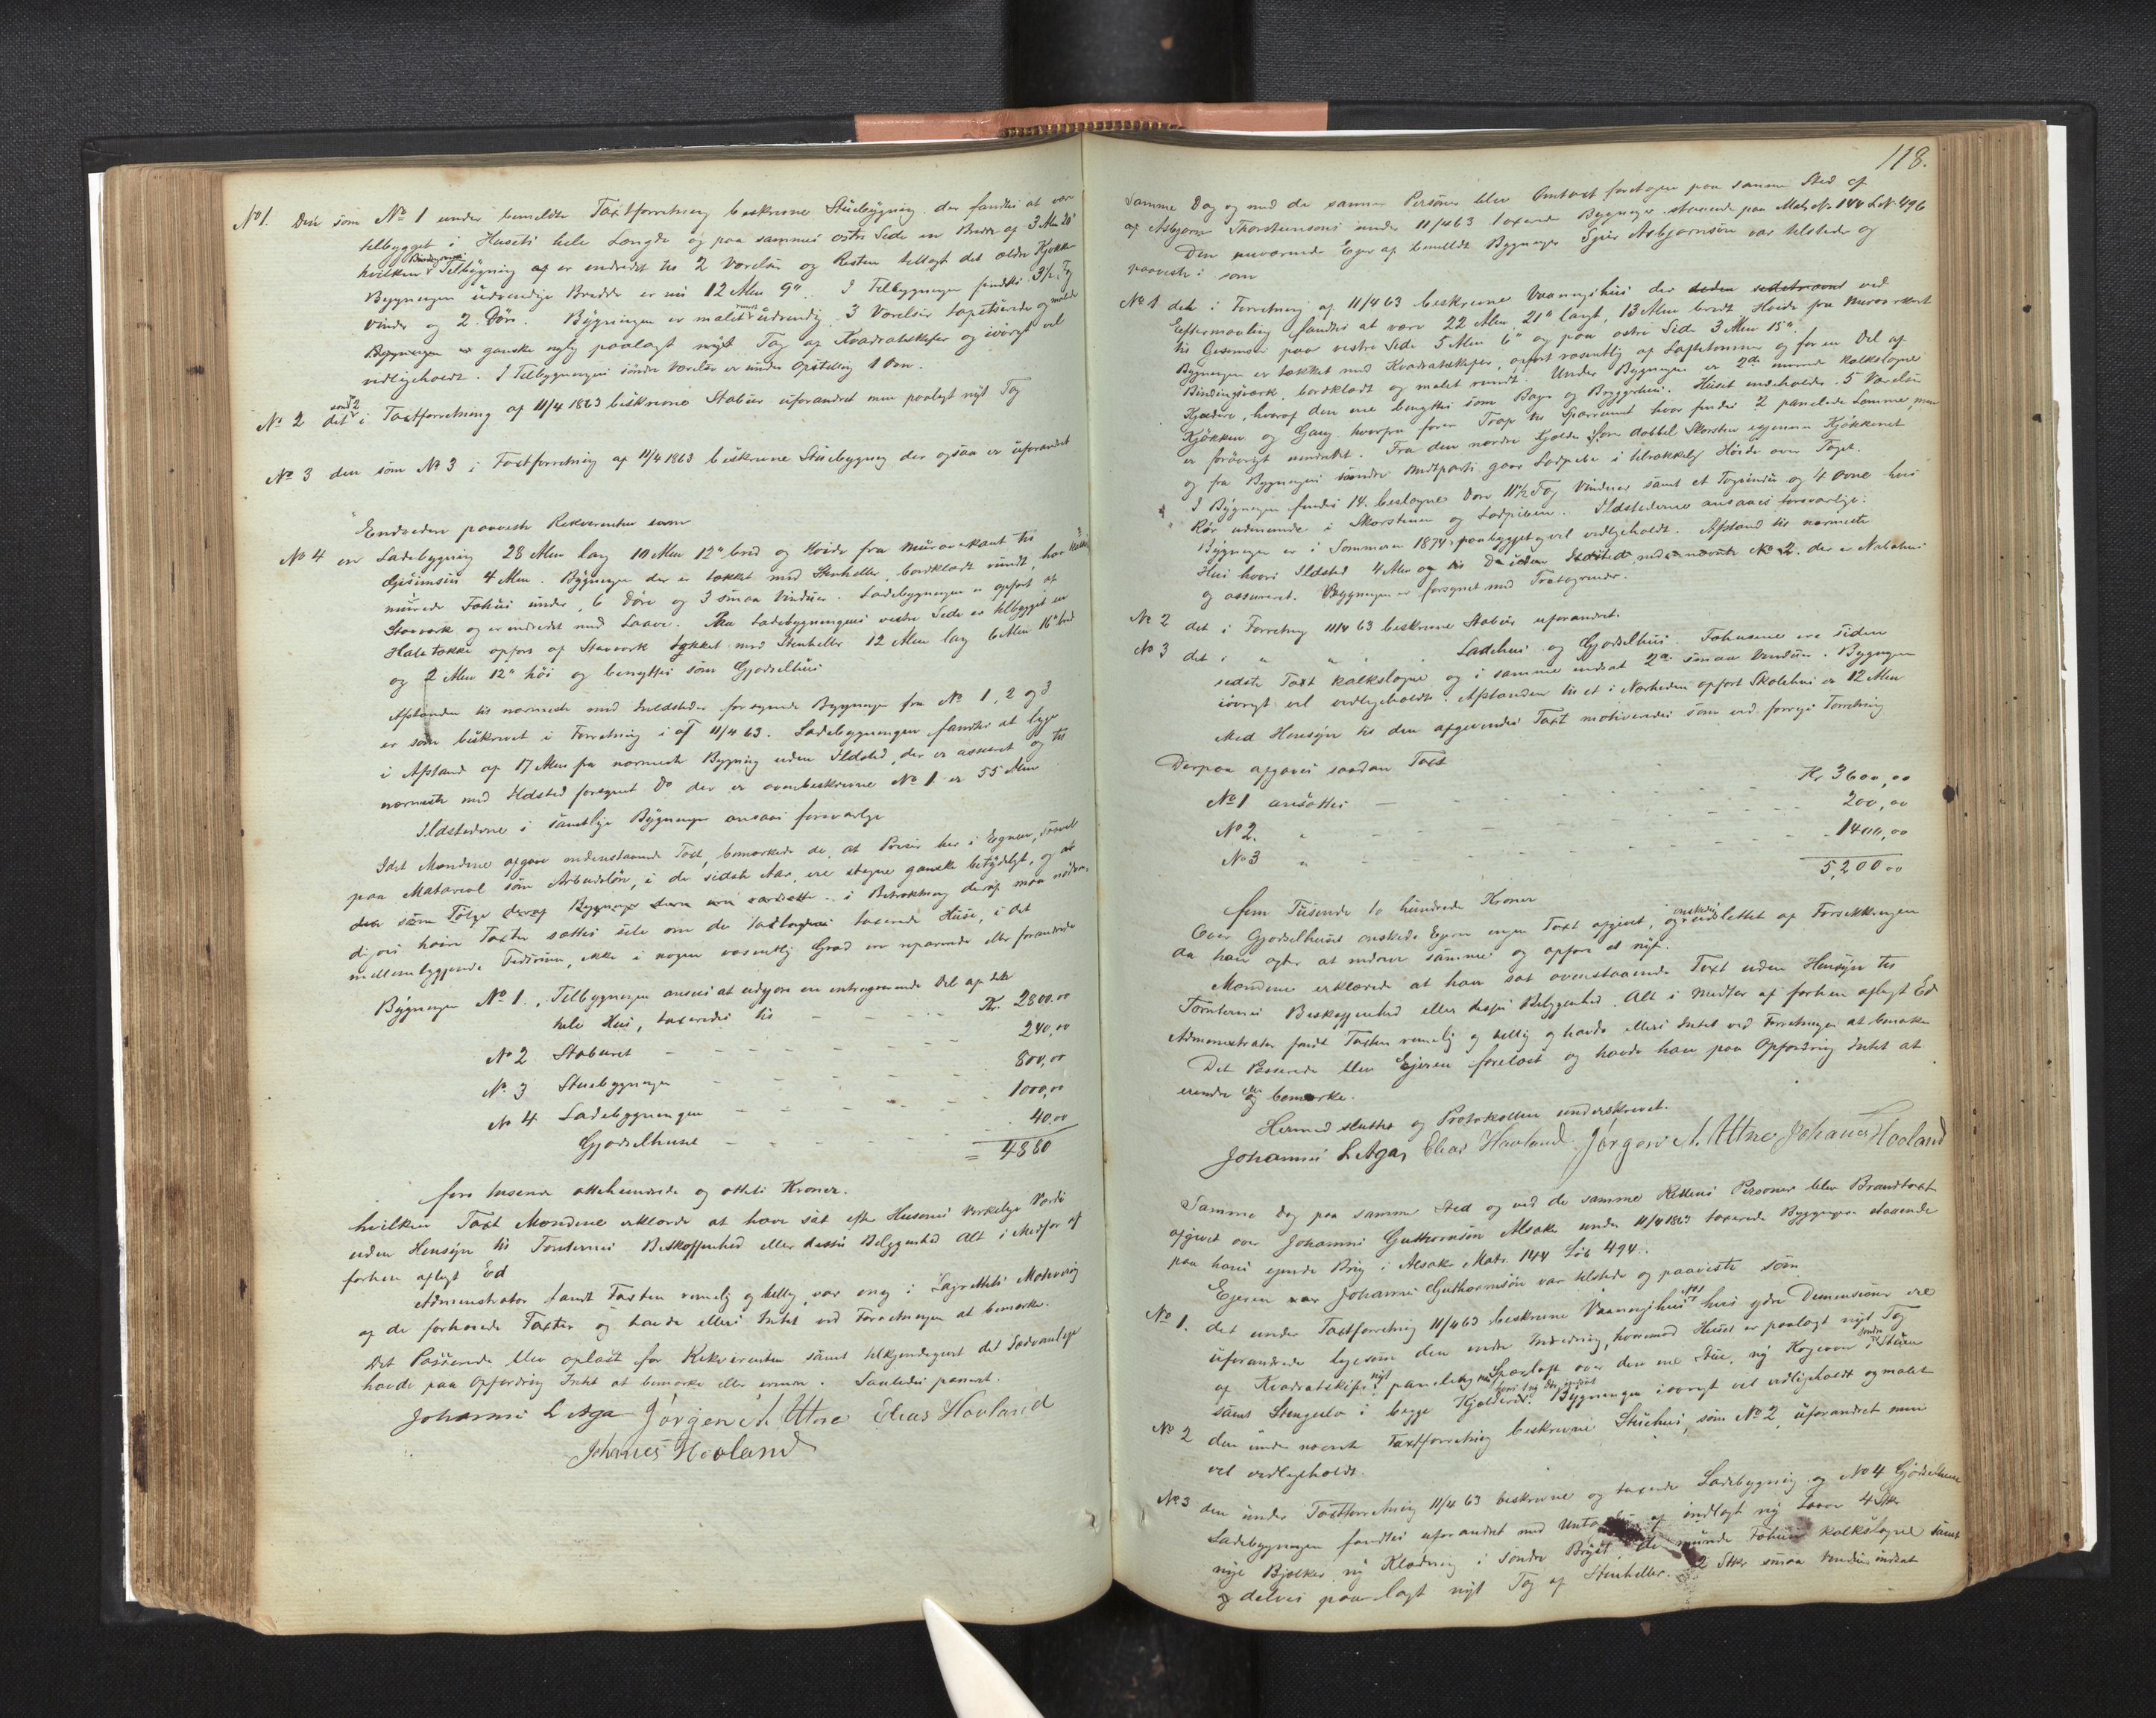 No 1. Den som No 1 under bemeldte Taxtforretning beskrevne Stuebygning der fandtes at være
tilbygget i Husets hele Længde og paa sammes østre Side en Bredde af 3 Alen 20"
hvilken Tilbygning er indredet til 2 Værelser og Resten tillagt det ældre Kjøkken
Bygningen udvendige Bredde er nu 12 Alen 9". I Tilbygningen findes 3½ Fag
Vinder og 2 Døre. Bygningen er malet udvendig 3 Værelser tapetserede og malede
ganske nylig paalagt nyt Tag af Kvadratskifer og iøvrigt vel
vedligeholdt. I Tilbygningens søndre Værelse er under Opstilling 1 Ovn.
No 2 det som 2 i Taxtforretning af 11/4 1863 beskrevne Stabur uforandret men paalagt nyt Tag
No 3 den som No 3 i Taxtforretning af 11/4 1863 beskrevne Stuebygning der ogsaa er uforandret
Endvidere paaviste Rekvirenten som
No 4 en Ladebygning 28 Alen lang 10 Alen 12" bred og Høide fra Muroverkant til
Gesimsen 4 Alen. Bygningen der er tækket med Stenheller, bordklædt rundt, har
murede Fæhus under, 6 Døre og 3 smaa Vinduer. Ladebygningen er opført af
Stavværk og er indredet med Laave. Paa Ladebygningens vestre Side er tilbygget en
opført af Stavværk tækket med Stenheller 12 Alen lang 6 Alen 16" bred
og 2 Alen 12" høi og benyttes som Gjødselhus
Afstanden til nærmeste med Ildsteder forsynede Bygninger fra No 1, 2 og 3
er som beskrevet i Forretning af 11/4 63. Ladebygningen fandtes at ligge
i Afstand af 17 Alen fra nærmeste Bygning uden Ildsted, der er assureret og til
nærmeste med Ildsted forsynet Do der er ovenbeskrevne No 1 er 55 Alen
Ildstederne i samtlige Bygninger ansaaes forsvarlige
Idet Mændene afgave nedenstaaende Taxt, bemærkede de, at Priser her i Egnen, saavel
paa Material som Arbeidsløn, i de sidste Aar, ere stegne ganske betydeligt, og at
der som Følge deraf i Betragtning deraf maa nødven-
digvis høiere Taxter sættes selv om de taxerede Huse, i det
mellemliggende Tidsrum, ikke i nogen væsentlig Grad ere reparerede eller forandrede
Bygningen No 1. Tilbygningen ansees at udgjøre en integrerende Del af det
hele Hus, taxeredes til - - - - Kr. 2800.00
No 2 Staburet - - - - 240,00
No 3 Stuebygningen - - - - 800,00
No 4 Ladebygningen - - - - 1000,00
Gjødselhuset - - - - 40.00
= 4880
fire tusende ottehundrede og otteti Kroner.
hvilken Taxt Mændene erklærede at have sat efter Husenes virkelige Værdi
uden Hensyn til Tomternes Beskaffenhed eller desses Beliggenhed Alt i Medfør af
forhen aflagt Ed
Administrator fandt Taxten rimelig og billig, var enig i Lagrettets Motivering
af de forhøiede Taxter og havde ellers Intet ved Forretningen at bemærke.
Det Passerede blev oplæst for Rekvirenten samt tilkjendegivet det Sædvanlige
havde paa Opfordring Intet at bemærke eller erindre. Saaledes passeret.
Johannes L Aga Jørgen A. Utne Elias Hovland
Johanes Hovland
118.
Samme Dag og med de samme Personer blev Omtaxt foretagen paa samme Sted af
af Asbjørn Thorsteinsens under 11/4 63 taxerede Bygninger staaende paa Matr. No 144 L.No 496
Den nuværende Eier af bemeldte Bygninger Asbjørnsen var tilstede og
paaviste: som
No 1 det i Forretning af 11/4 63 beskrevne Vaaningshus der ved
Eftermaaling fandtes at være 22 Alen 21" langt, 13 Alen bredt Høide fra Muroverkant
til Gesimsen paa vestre Side 5 Alen 6" og paa østre Side 3 Alen 15".
Bygningen er tækket med Kvadratskifer, opført væsentlig af Laftetømmer og for en Del af
Bindingsværk, bordklædt og malet rundt. Under Bygningen er 2de murede kalkslagne
Kjældere, hvoraf den ene benyttes som Bage og Bryggerhus. Huset indeholder 5 Værelser
Kjøkken og Gang hvorfra fører Trap til Sparrumet hvor findes 2 panelede Kamre, men
er forøvrigt uindredet. Fra den nordre Kjelder fører dobbel Skorsten igjennem Kjøkkenet
og fra Bygningens søndre Midtparti gaar Ladpibe i tilrækkelig Høide over Taget.
I Bygningen findes 14 beslagne Døre 11½ Fag Vinduer samt et Tagvindue og 4 Ovne hvis
Rør udmunde i Skorstenen og Ladpiben. Ildstederne ansaaes forsvarlige.
Bygningen er i Sommeren 1874 paabygget og vel vedligeholdt. Afstand til nærmeste
Hus hvori Ildsted 4 Alen og der er Nabohus
og assureret. Bygningen er forsynet med Tratagrender.
No 2 det i Forretning 11/4 63 beskrevne Stabur uforandret.
No 3 det i " " " Ladehus og Gjødselhus. Fæhusene ere siden
sidste Taxt kalkslagne og i samme indsat 2de smaa Vinduer. Bygningen
iøvrigt vel vedligeholdt. Afstanden til et i Nærheden opført Skolehus er 12 Alen
Med Hensyn til den afgivendes Taxt motiveredes som ved forrige Forretning
Derpaa afgaves saadan Taxt
No 1 ansattes - - - - Kr 3600,00
No 2. " - - - - 200,00
No 3 " - - - - 1400,00
5,200 00
fem Tusende to hundrede Kroner
Over Gjødselhuset ønskede Eieren ingen Taxt afgivet, og ønskedes udslettet af Forsikringen
da han agter at nedrive samme og opføre et nyt.
Mændene erklærede at have sat ovenstaaende Taxt uden Hensyn til
Tomternes Beskaffenhed eller dessens Beliggenhed. Alt i Medfør af forhen aflagt Ed
Administrator fandt Taxten rimelig og billig og havde ellers Intet ved Forretningen at bemærke
Det Passerede blev Ejeren forelæst og havde han paa Opfordring Intet at
erindre eller bemærke.
Hermed sluttet og Protokollen underskrevet.
Johannes L Aga, Elias Hovland. Jørgen A. Utne Johanes Hovland
Samme Dag paa samme Sted og ved de samme Rettens Personer blev Brandtaxt
afgivet over Johannes Guthormsen Alsaker under 11/4 1863 taxerede Bygninger staaende
paa hans eiende Brug i Alsaker Matr. 144 Løb 494.
Ejeren Johannes Guthormsøn var tilstede og paaviste som
No 1. det under Taxtforretning 11/4 63 beskrevne Vaaningshus hvis ydre Dimensioner ere
uforandrede ligesom den indre Indredning, hvorimod Huset er paalagt nyt Tag
af Kvadratskifer nyt panelet Sparloft over den ene Stue, ny Kogeovn i søndre Stuen
samt Stengulv i begge Kjælderne. Bygningen iøvrigt vel vedligeholdt og malet
No 2 den under nævnte Taxtforretning beskrevne Stuehus, som No 2, uforandret men
vel vedligeholdt.
No 3 den under Taxtforretning 11/4 63 beskrevne og taxerede Ladebygning og No 4 Gjødselhus
Ladebygningen fandtes uforandret med Undtagelse af indlagt ny Laave 4 Stk
nye Bjelker, ny Klædning i søndre Brøst, murede Fæhus kalkslagne samt
2 Stkr smaa Vinduer indsat
og delvis paalagt nyt Tag af Stenheller.